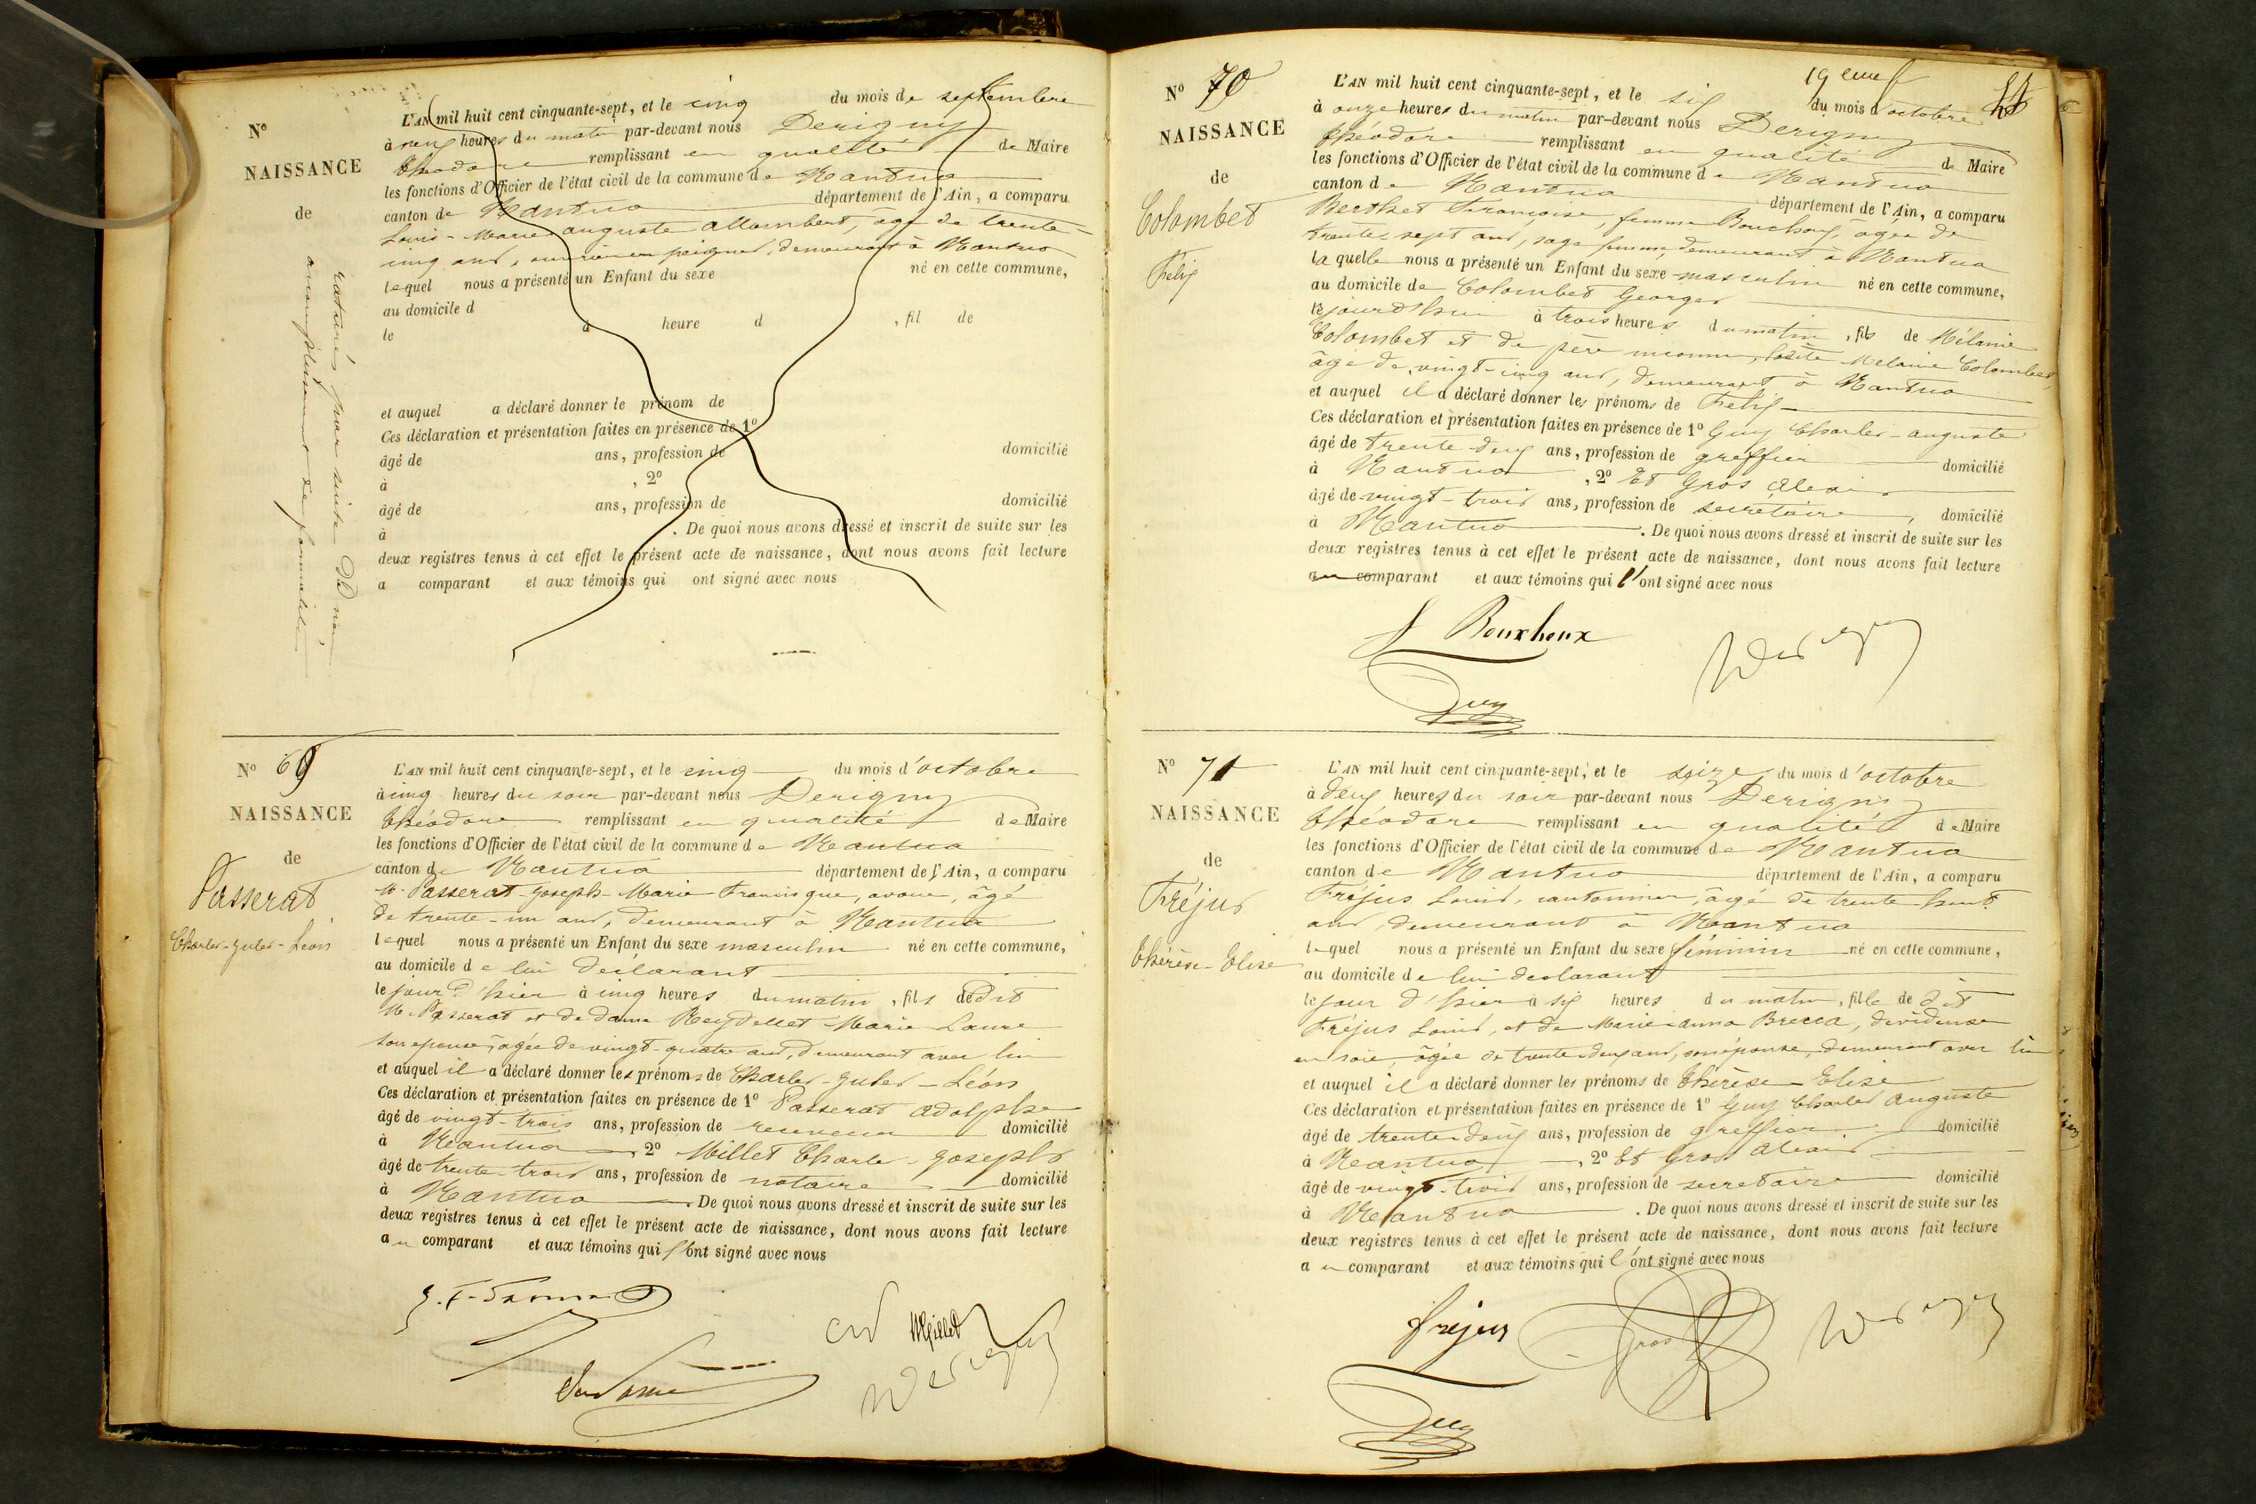 N°
NAISSANCE
de
L'AN mil huit cent cinquante-sept, et le cinq du mois de septembre
à heures du matin par-devant nous Derigny
Théodore remplissant en qualité de Maire
les fonctions d'Officier de l'état civil de la commune de Nantua
canton de Nantua département de l'Ain, a comparu
Louis-Marie auguste allombert, âgé de trente-
cinq ans, ouvrier en peignes, demeurant à Nantua
lequel nous a présenté un Enfant du sexe né en cette commune,
au domicile d
le à heure d , fil de
et auquel a déclaré donner le prénom de
Ces déclaration et présentation faites en présence de 1°
âgé de ans, profession de domicilié
à , 2°
âgé de ans, profession de domicilié
à . De quoi nous avons dressé et inscrit de suite sur les
deux registres tenus à cet effet le présent acte de naissance, dont nous avons fait lecture
a comparant et aux témoins qui ont signé avec nous
raturés par suite de non
accomplissement de formalités
N° 69
NAISSANCE
de
Passerat
Charles-Jules-Léon
L'AN mil huit cent cinquante-sept, et le cinq du mois d'octobre
à cinq heures du soir par-devant nous Derigny
Théodore remplissant en qualité de Maire
les fonctions d'Officier de l'état civil de la commune de Nantua
canton de Nantua département de l'Ain, a comparu
M. Passerat Joseph-Marie Francisque, avoué, âgé
de trente-un ans, demeurant à Nantua
lequel nous a présenté un Enfant du sexe masculin né en cette commune,
au domicile de lui déclarant
le jour d'hier à cinq heures du matin, fils de Dit
M. Passerat et de dame Reydellet Marie Laure
son épouse, âgée de vingt-quatre ans, demeurant avec lui
et auquel il a déclaré donner les prénoms de Charles-Jules-Léon
Ces déclaration et présentation faites en présence de 1° Passerat adolphe
âgé de vingt-trois ans, profession de receveur domicilié
à Nantua , 2° Millet Charle-Joseph
âgé de trente-trois ans, profession de notaire domicilié
à Nantua . De quoi nous avons dressé et inscrit de suite sur les
deux registres tenus à cet effet le présent acte de naissance, dont nous avons fait lecture
au comparant et aux témoins qui l'ont signé avec nous
Millet
Derigny
19 eme f
N° 70
NAISSANCE
de
Colombet
Félix
L'AN mil huit cent cinquante-sept, et le six du mois d'octobre
à onze heures du matin par-devant nous Derigny
Théodore remplissant en qualité de Maire
les fonctions d'Officier de l'état civil de la commune de Nantua
canton de Nantua département de l'Ain, a comparu
Berthet Françoise, femme Bouchoux, âgée de
trente-sept ans, sage femme, demeurant à Nantua
laquelle nous a présenté un Enfant du sexe masculin né en cette commune,
au domicile de Colombet Georges
le jourd'hui à trois heures du matin, fils de Mélanie
Colombet et de père inconnu, ladite Mélanie Colombet,
âgée de vingt-cinq ans, demeurant à Nantua
et auquel il a déclaré donner les prénoms de Félix
Ces déclaration et présentation faites en présence de 1° Guy Charles-auguste
âgé de trente-deux ans, profession de greffier domicilié
à Nantua , 2° Et Gros alexis
âgé de vingt-trois ans, profession de secrétaire, domicilié
à Nantua . De quoi nous avons dressé et inscrit de suite sur les
deux registres tenus à cet effet le présent acte de naissance, dont nous avons fait lecture
au comparant et aux témoins qui l'ont signé avec nous
f Bouchoux
Derigny
Guy
N° 71
NAISSANCE
de
Fréjus
Thérèse-Elise
L'AN mil huit cent cinquante-sept, et le seize du mois d'octobre
à deux heures du soir par-devant nous Derigny
Théodore remplissant en qualité de Maire
les fonctions d'Officier de l'état civil de la commune de Nantua
canton de Nantua département de l'Ain, a comparu
Fréjus Louis, cantonnier, âgé de trente-huit
ans, demeurant à Nantua
lequel nous a présenté un Enfant du sexe féminin né en cette commune,
au domicile de lui déclarant
le jour d'hier à six heures du matin, fille de dit
Fréjus Louis, et de Marie-anna Brecca, dévideuse
en soie, âgée de trente-deux ans, son épouse, demeurant avec lui
et auquel il a déclaré donner les prénoms de Thérèse-Elise
Ces déclaration et présentation faites en présence de 1° Guy Charles Auguste
âgé de trente-deux ans, profession de greffier domicilié
à Nantua , 2° Et Gros Alexis
âgé de vingt-trois ans, profession de secrétaire domicilié
à Nantua . De quoi nous avons dressé et inscrit de suite sur les
deux registres tenus à cet effet le présent acte de naissance, dont nous avons fait lecture
au comparant et aux témoins qui l'ont signé avec nous
fréjus
Gros
Derigny
Guy